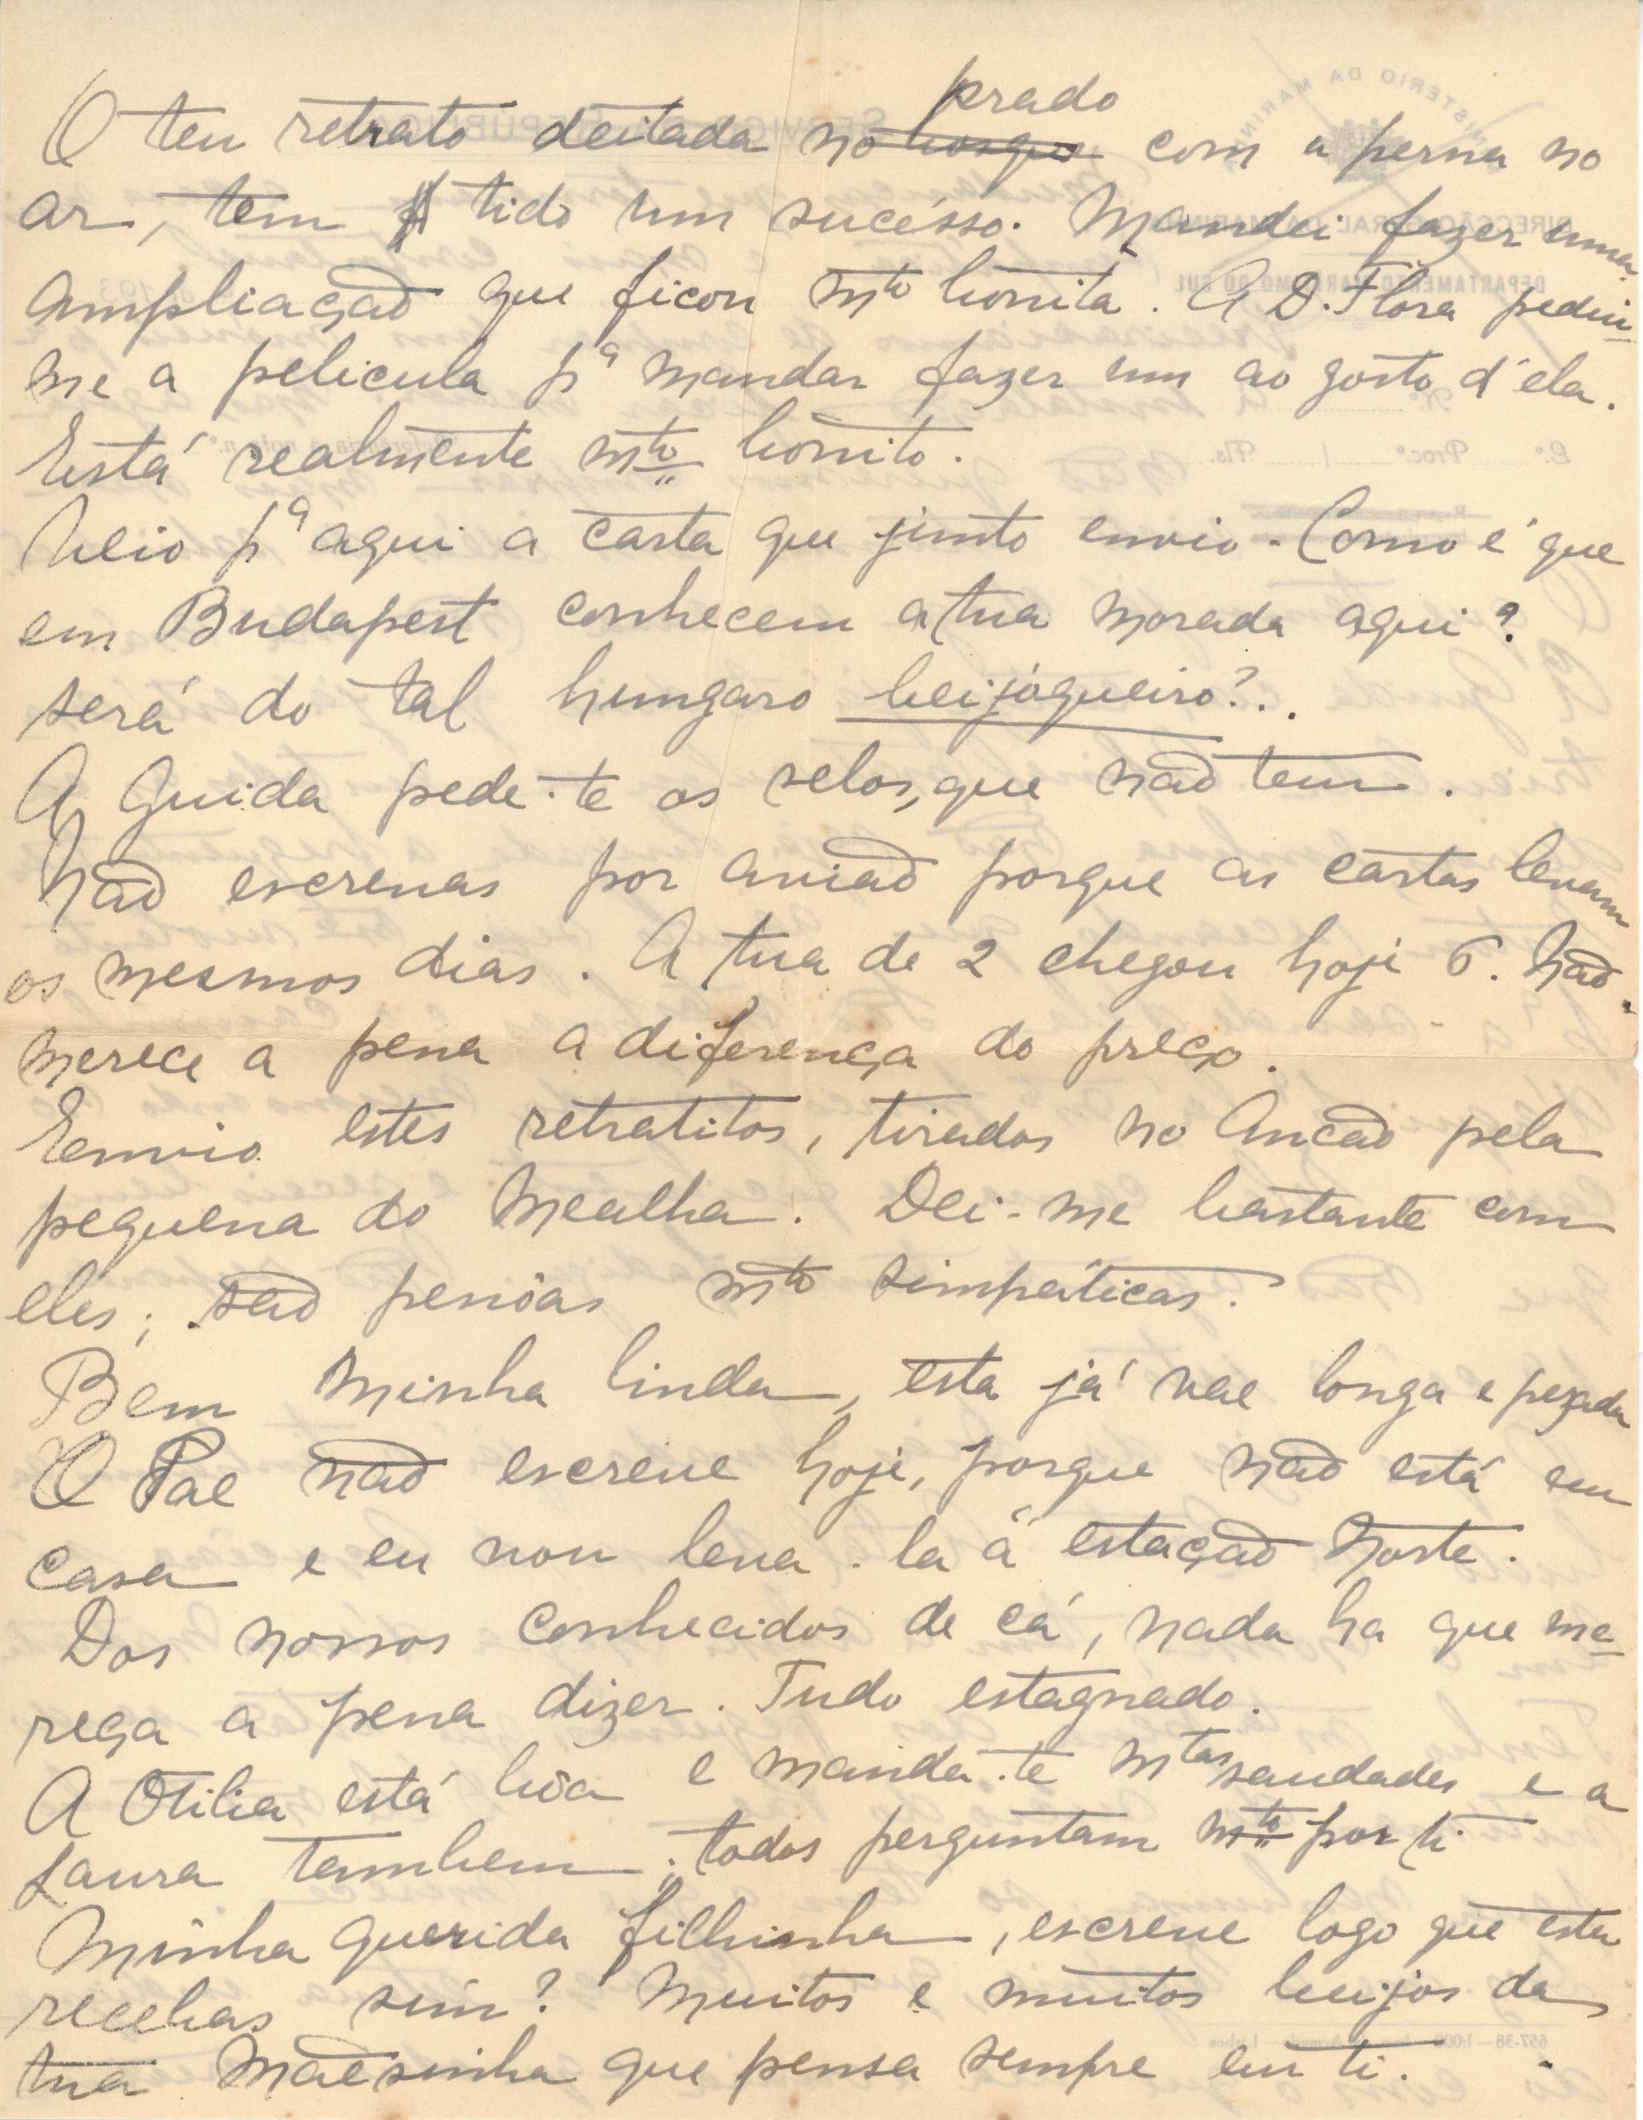 O teu retrato deitada no bosque prado com a perna no
ar, tem tido um sucésso. Mandei fazer uma
ampliação que ficou mto bonita. A D. Flora pediu-
me a pelicula pª mandar fazer um ao gosto d'ela.
Está realmente mto bonito.
Veio pª aqui a carta que junto envio. Como é que
em Budapest conhecem a tua morada aqui?
será do tal hungaro beijoqueiro?..
A Guida pede-te os selos, que não tem.
Não escrevas por avião porque as cartas levam
os mesmos dias. A tua de 2 chegou hoje 6. Não
merece a pena a diferença do preço.
Eenvio estes retratitos, tirados no Ancão pela
pequena do Mealha. Dei-me bastante com
eles; são pessôas mto simpáticas.
Bem minha linda, esta já vae longa e pezada
O Pae não escreve hoje, porque não está em
casa e eu vou leva-la á estação Norte.
Dos nossos conhecidos de cá, nada ha que me-
reça a pena dizer. Tudo estagnado.
A Otilia está bôa e manda-te mtas saudades e a
Laura tambem; todos perguntam mto por ti
Minha querida filhinha, escreve logo que esta
recebas sim? Muitos e muitos beijos da
tua Mãesinha que pensa sempre em ti.